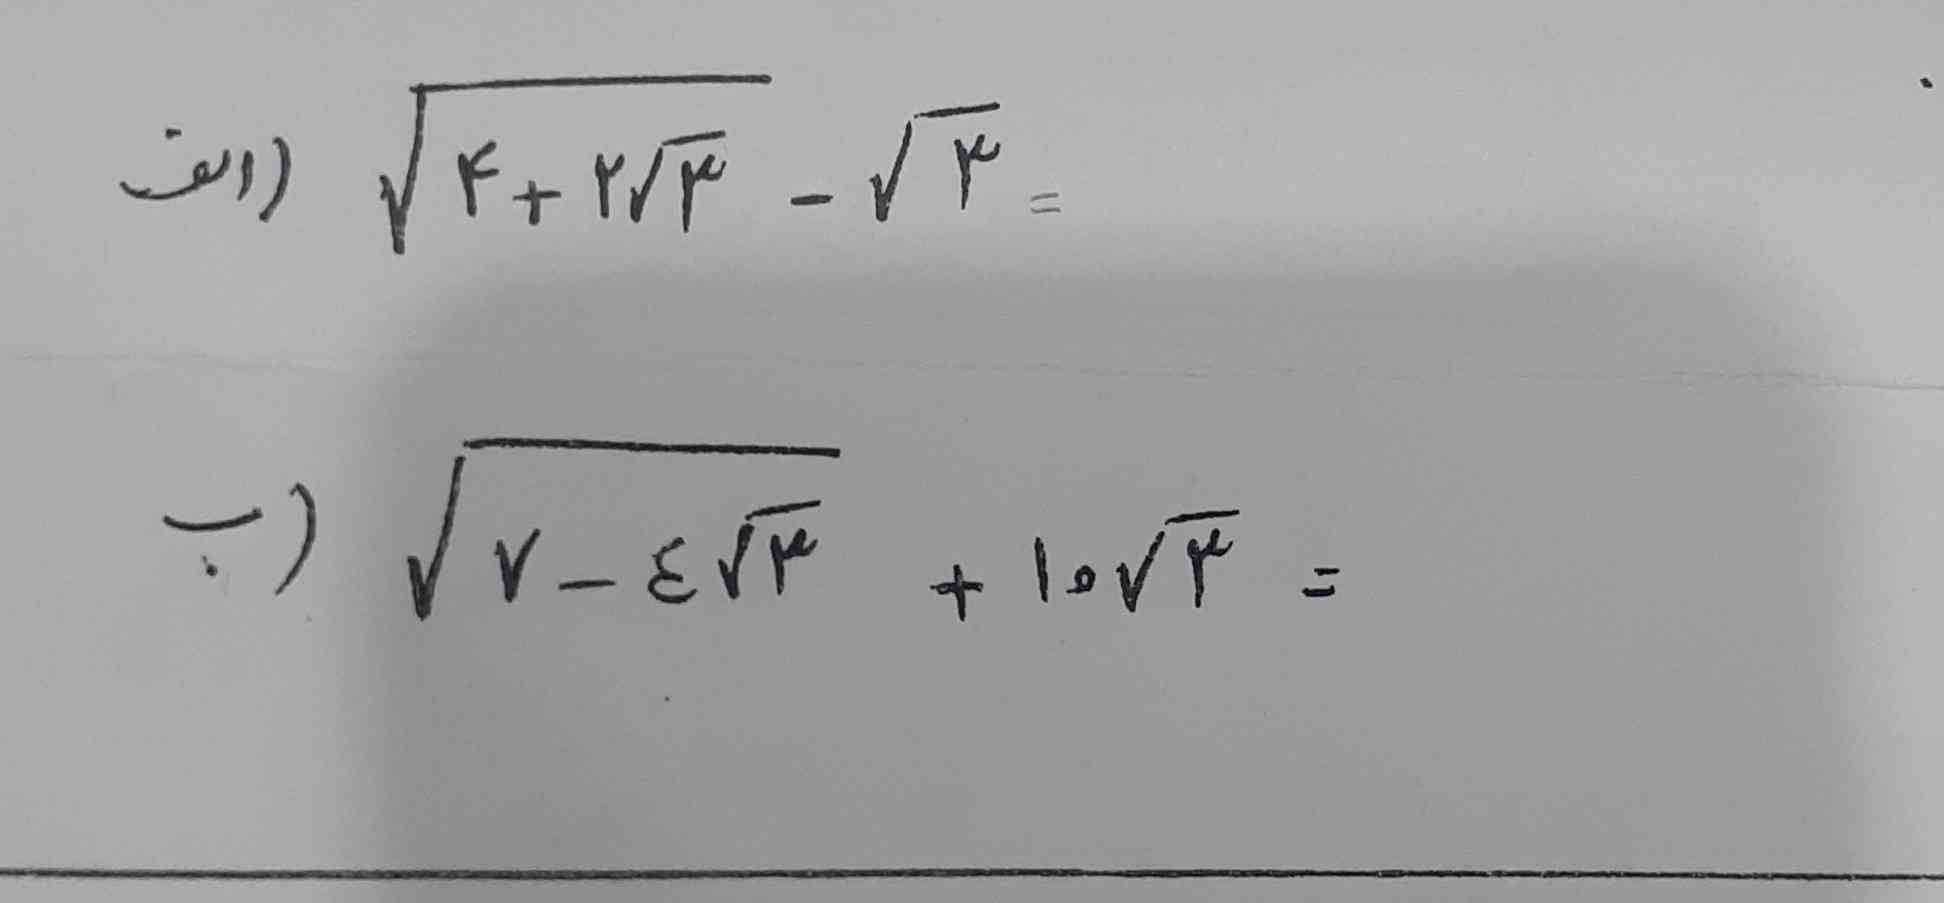 الف) √(۴ + ۲√۳) - √۳ =
ب) √(۷ - ٤√۳) + ۱۰√۳ =